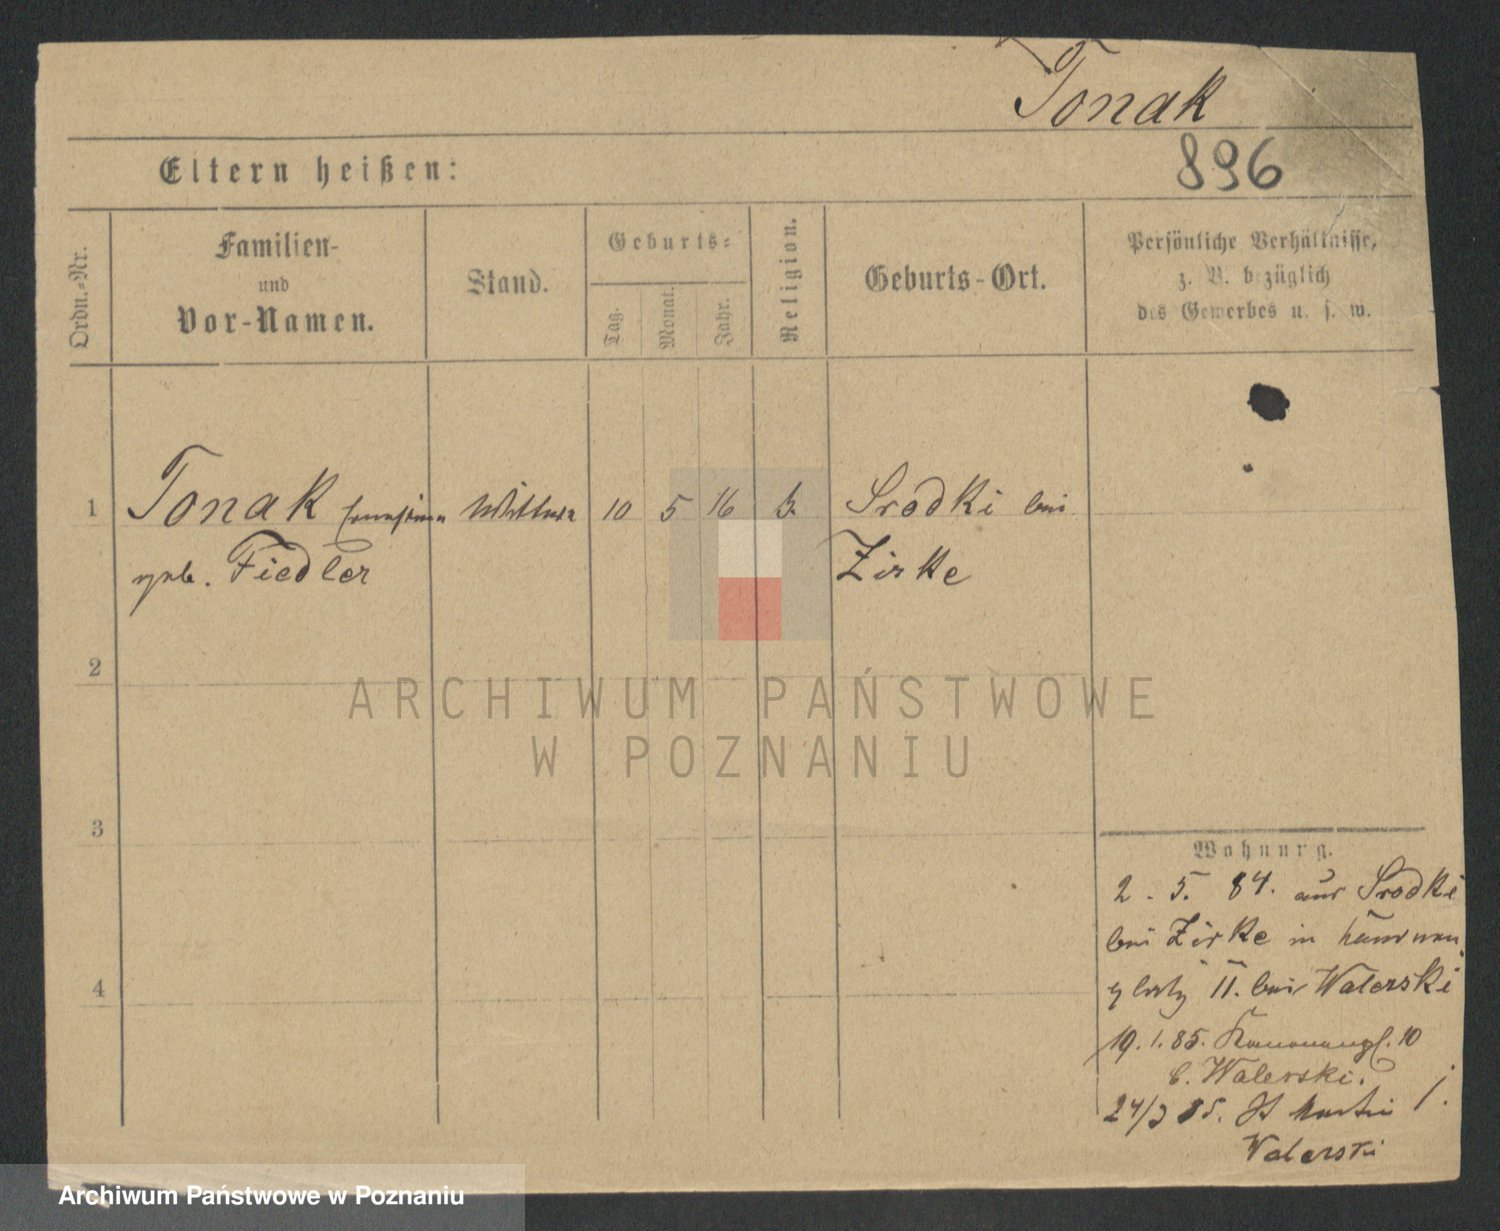 Tonak
896
Eltern heißen:
Ordn.=Nr.
Familien-
und
Vor-Namen.
Stand.
Geburts=
Tag.
Monat.
Jahr.
Religion.
Geburts-Ort.
Persönliche Verhältnisse,
z. B. bezüglich
des Gewerbes u. s. w.
1
Tonak
10 5 16
Srodki bei
geb. Fiedler
Zirke
2
ARCHIWUM PAŃSTWOWE
W POZNANIU
3
Wohnung.
2. 5. 84. aus Srodki
bei Zirke in
platz 11. bei Walerski
4
19. 1. 85. Kanonenpl. 10
b. Walerski.
24/3 85. St Martin 1.
Walerski
Archiwum Państwowe w Poznaniu